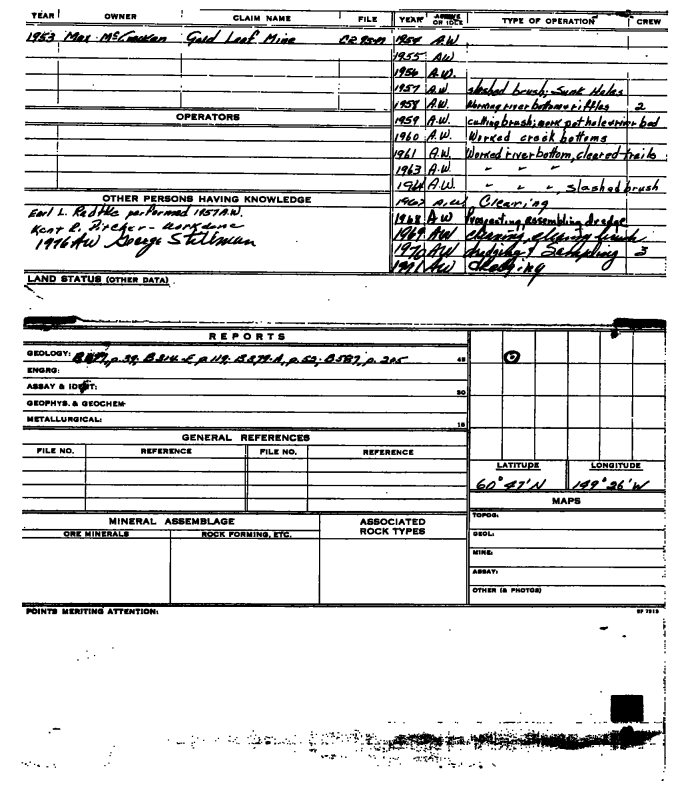 YEAR OWNER CLAIM NAME FILE YEAR ACTIVE OR IDLE TYPE OF OPERATION CREW
1953 Max McCracken Gold Leaf Mine 1954 A.W.
1955 AW
1956 A.W.
1957 A.W. slashed brush; Sunk Holes
1958 A.W. Working river bottom & riffles 2
OPERATORS
1959 A.W. cutting brush; work pot hole & river bed
1960 A.W. Worked creek bottoms
1961 A.W. Worked river bottom, cleared trails
1963 A.W. " " "
1964 A.W. " " " , slashed brush
OTHER PERSONS HAVING KNOWLEDGE
1967 A.W. Clearing
Earl L. Radtke performed 1957 A.W.
1968 A.W Prospecting, assembling dredge
Kent R. Pitcher - work done
1969 AW cleaning, clearing brush
1976 AW George Stillman
1970 AW dredging & Sampling 3
1971 AW dredging
LAND STATUS (OTHER DATA)
REPORTS
GEOLOGY: p. 39; B 314-E p 119; B 379-A, p. 52; B 587, p. 205 45
ENGRG:
ASSAY & IDENT: 30
GEOPHYS. & GEOCHEM
METALLURGICAL: 15
GENERAL REFERENCES
FILE NO. REFERENCE FILE NO. REFERENCE
LATITUDE LONGITUDE
60° 47' N 149° 26' W
MAPS
MINERAL ASSEMBLAGE ASSOCIATED ROCK TYPES
ORE MINERALS ROCK FORMING, ETC.
TOPOG:
GEOL:
MINE:
ASSAY:
OTHER (& PHOTOS)
POINTS MERITING ATTENTION: